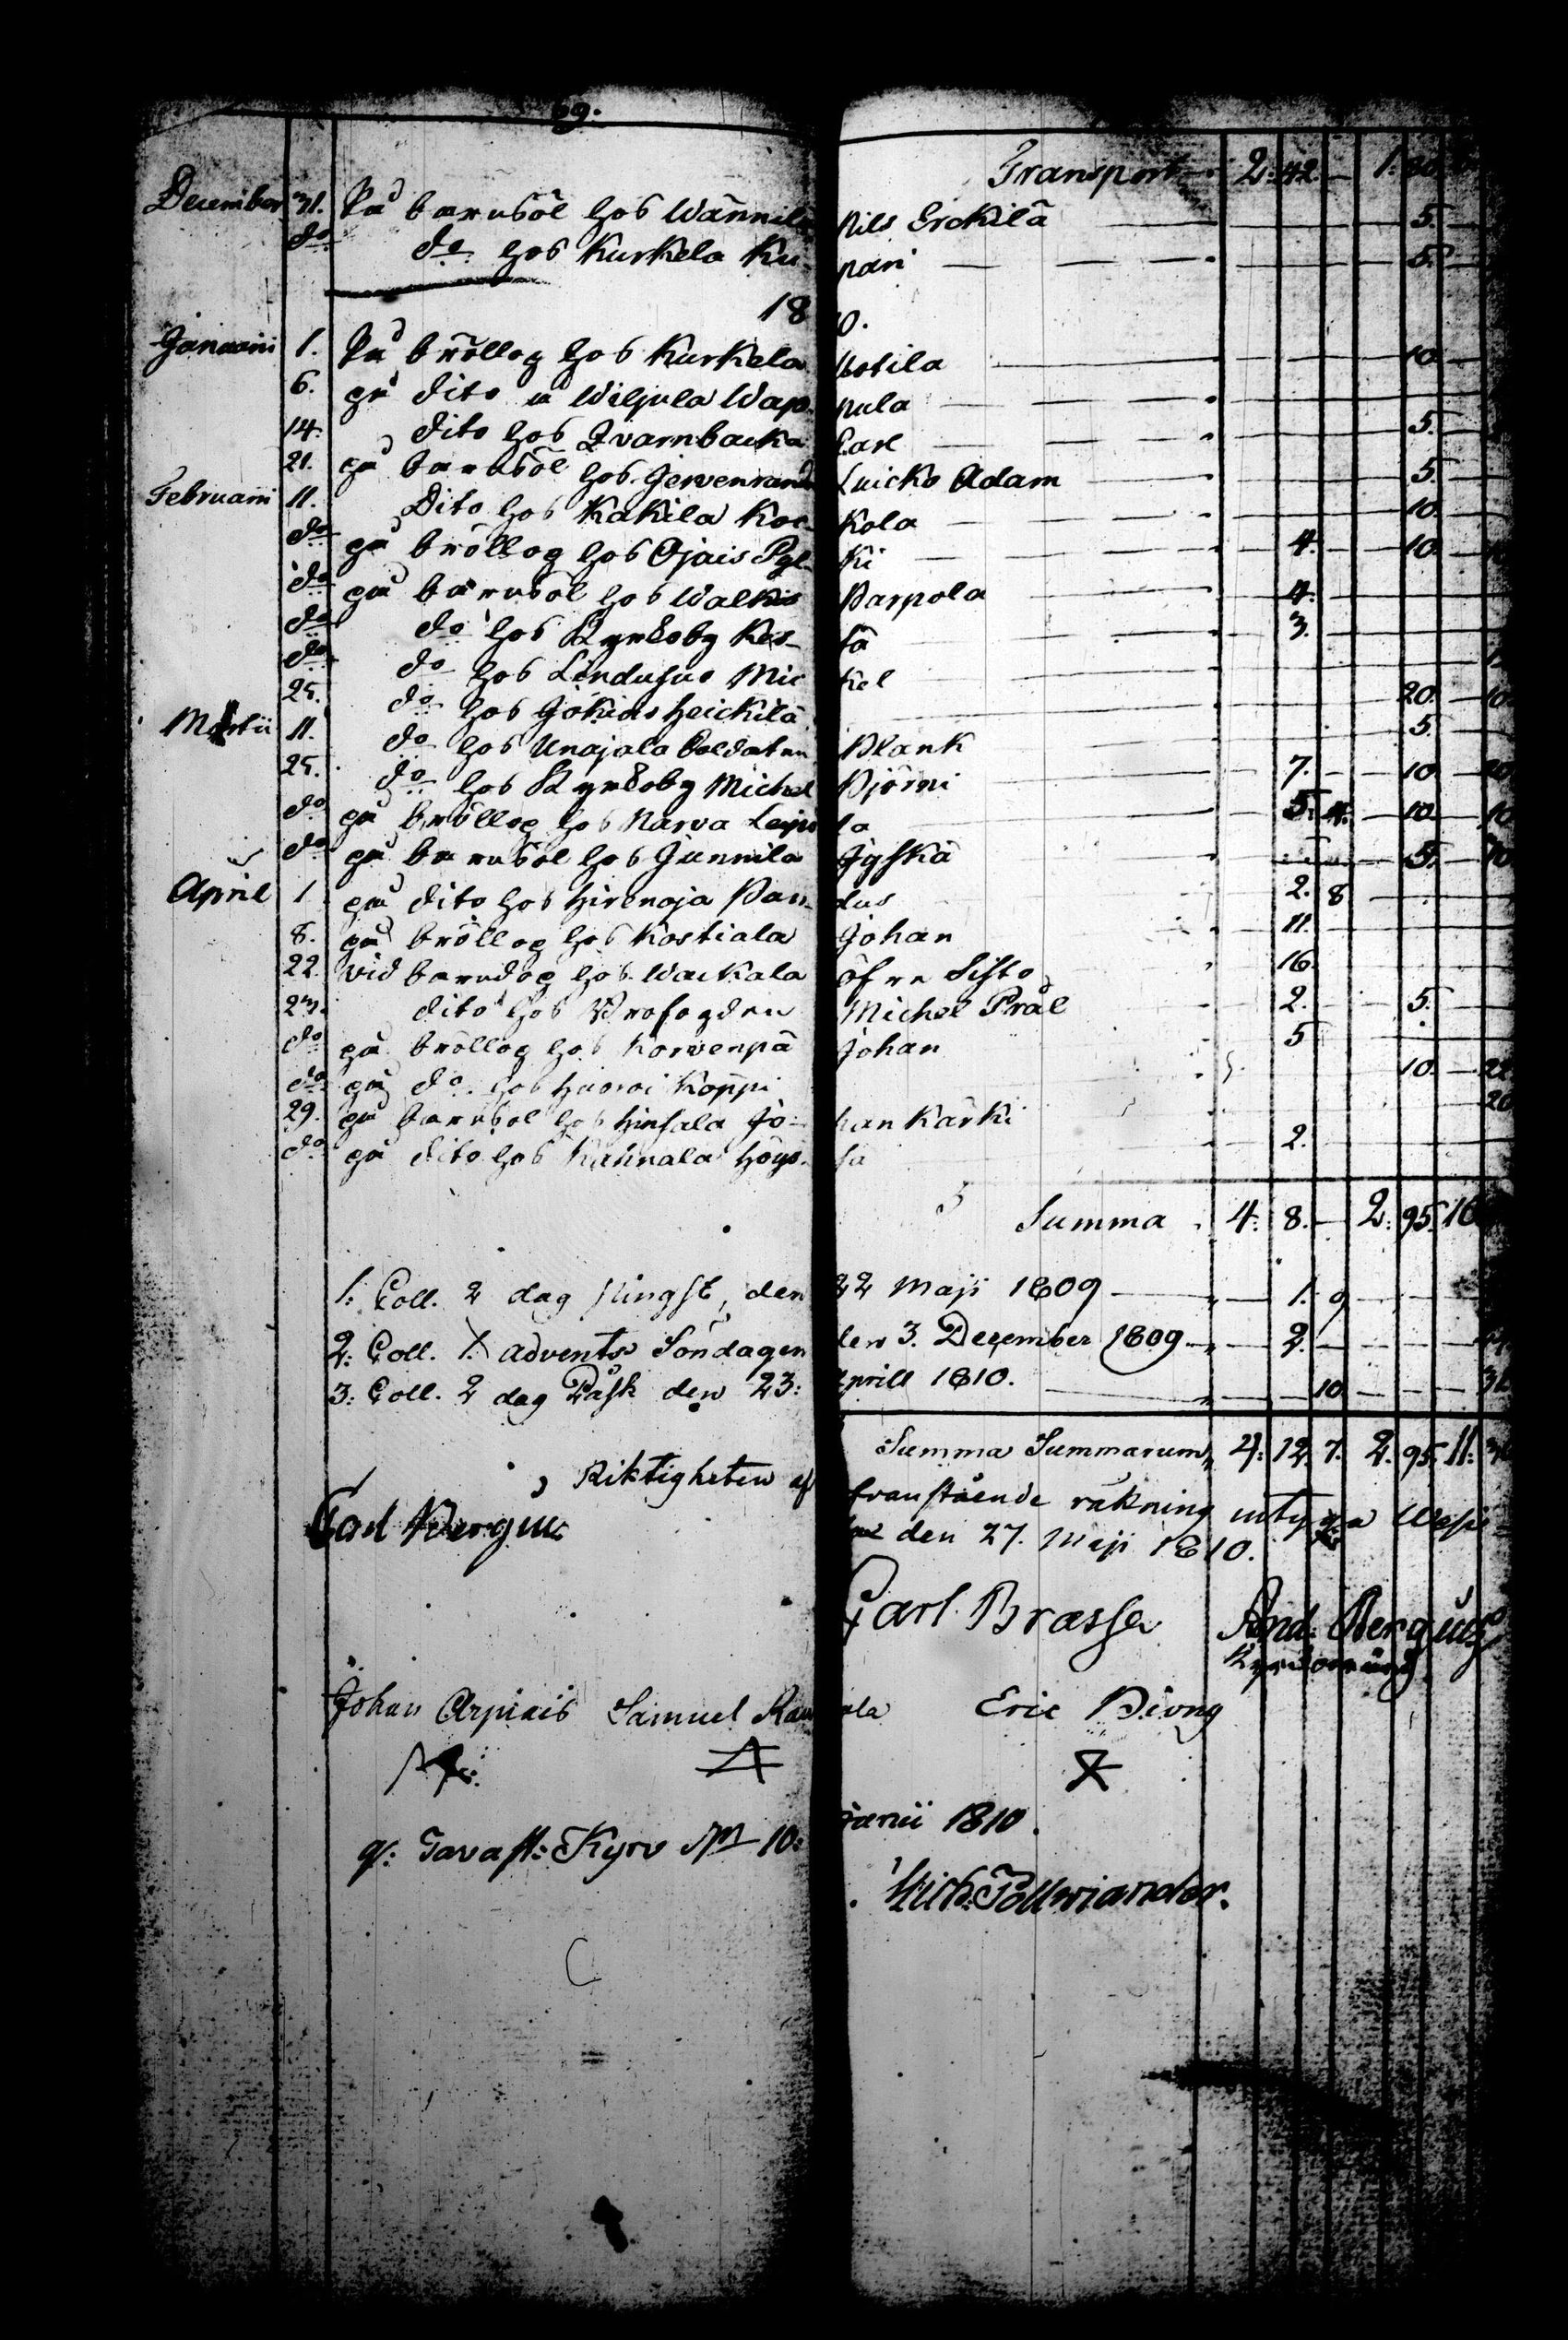 69.
Transport 2: 42. — 1: 30.
December 31. På barnsöl hos Wännilä Nils Erckilä — 5. —
do do hos Kurkela Ku-pari — 5. —
1810.
Januarii 1. På bröllop hos Kurkela Uotila — 10. —
6. på dito à Wiljula Wap-pula —
14. dito hos Qvarnbacka Carl — 5.
21. på barnsöl hos Jervenranda Luicko Adam — 5. —
Februarii 11. Dito hos Kakila Koc-kola — 10. —
do på bröllop hos Ojais Pyl-ki — 4. — 10. —
do på barnsöl hos Walkis Parpola — 4.
do do hos Kyrkoby Kes-sä 3.
do do hos Lenduhus Mic-kel
25. do hos Jökios Heickilä 20. — 10.
Martii 11. do hos Unajala Soldaten Plank 5. —
25. do hos Kyrkoby Michel Björni 7. — 10. — 20
do på bröllop hos Narva Leipo-la 5. 4. — 10. — 10.
do på barnsöl hos Junnila Jyskä 5. — 10
April 1 på dito hos Hirvnoja Pan-dus 2. 8
8. på bröllop hos Kostiala Johan 11.
22. vid barndop hos Wackala öfre Sisto 16.
23. dito hos Profogden Michel Prål 2. 5.
do på bröllop hos Korvenpä Johan 5
do på do. hos Hannoi Koppi 10. — 22
29. på barnsöl hos Hinsala Jo-han Kärki 20
do på dito hos Kannala Höys-sä 2.
Summa 4: 8. — 2: 95. 10
1: Coll. 2 dag Pingst, den 22 Maji 1809 — 1. 9
2: Coll. 1. Advents Söndagen den 3. December 1809 — 2. —
3: Coll. 2 dag Påsk den 23: Aprill 1810. — 10 — 36
Summa Summarum 4: 12. 7. 2. 95. 11:
Riktigheten af franstående räkning intyga
den 27. Maji 1810.
Carl Bergius
Carl Brasse And: Bergius
Johan Arpiais Samuel Eric
q: Tavast: Kyro 10: Junii 1810.